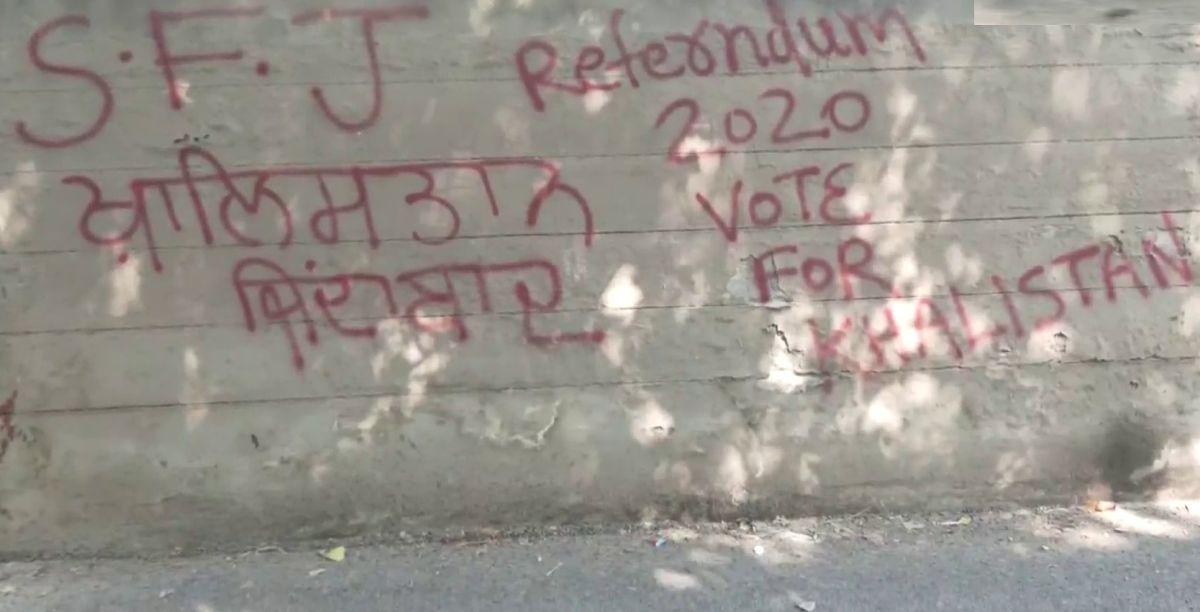 S.F.J
ਖ਼ਾਲਿਸਤਾਨ
ਜ਼ਿੰਦਾਬਾਦ
Referndum
2020
VOTE
FOR
KHALISTAN